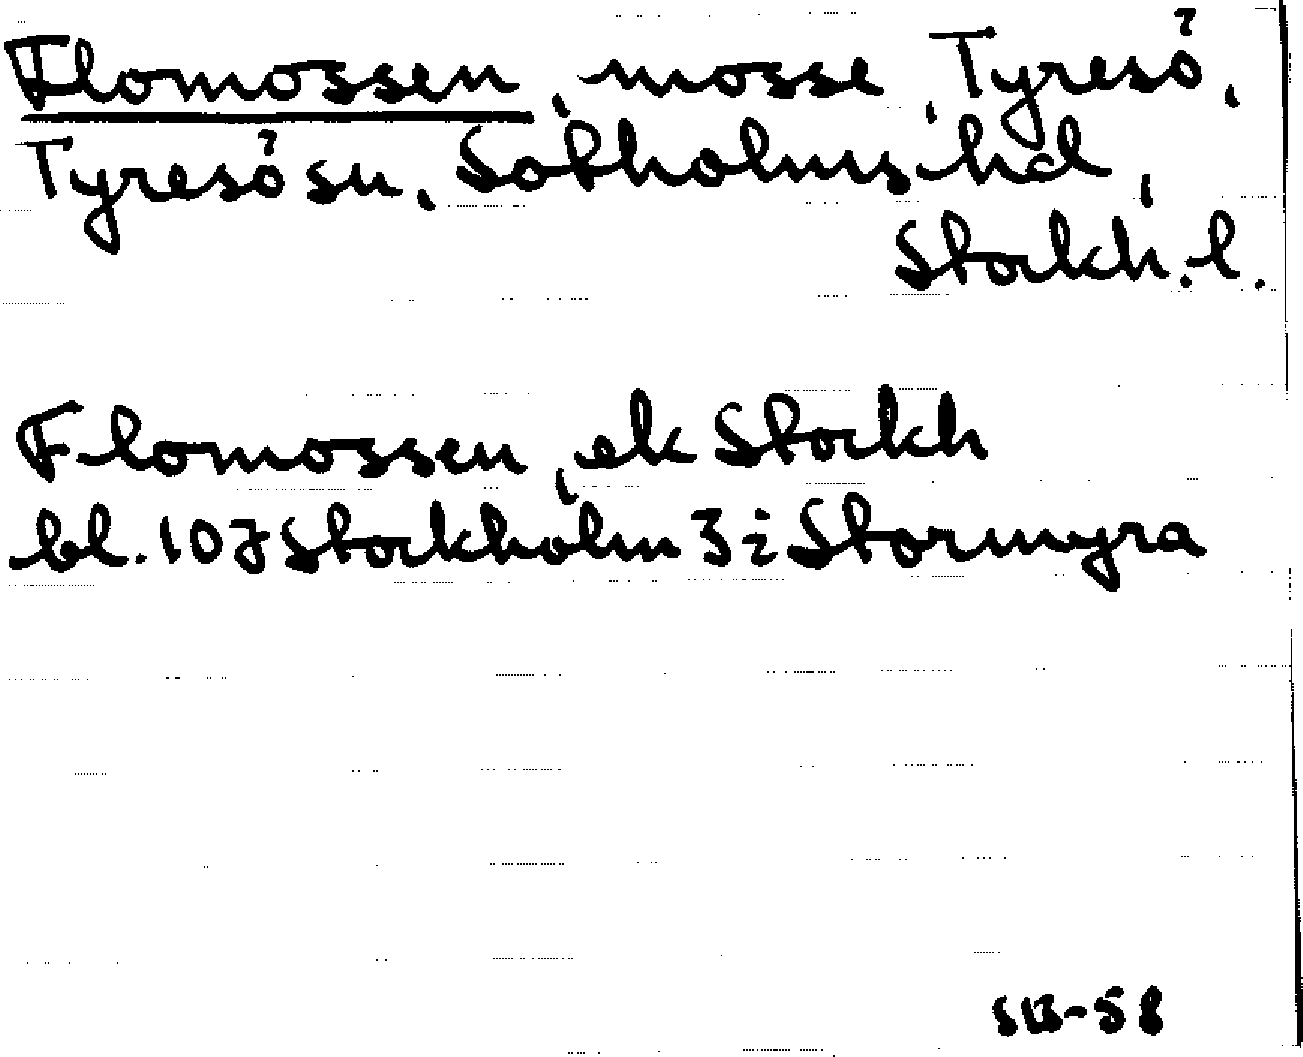 Flomossen, mosse, Tyresö,
Tyresö sn, Sotholms hd,
Stockh. l.
Flomossen, ek Stockh
bl. 107 Stockholm 3 i Stormyra
SB-58